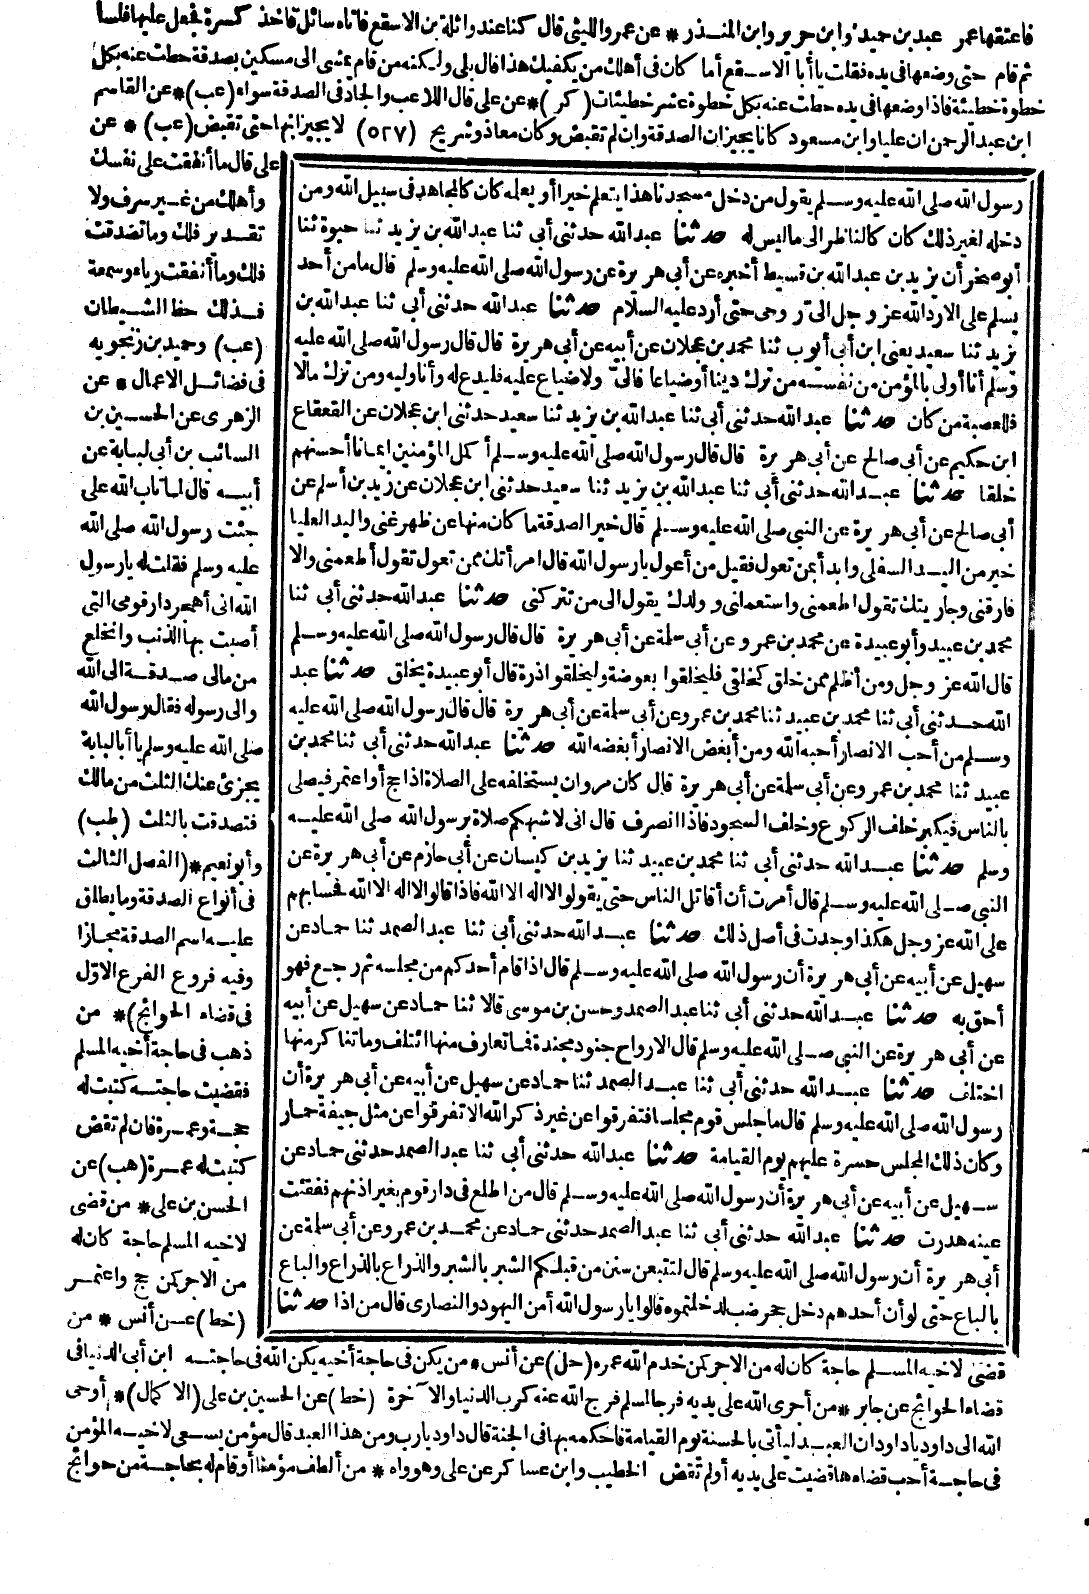 فاعتقها عمر عبد بن حميد وابن جرير وابن المنـذر * عن عمرو الليثي قال كنا عند واثلة بن الاسقع فاتاه سائل فاخذ كسرة فجعل عليها فلسا
ثم قام حتى وضعها في يده فقلت يا أبا الاسـقع أما كان في أهلك من يكفيك هذا قال بلى ولكنه من قام يمشى الى مسكين بصدقة حطت عنه بكل
خطوة خطيئة فاذا وضعها في يده حطت عنه بكل خطوة عشر خطيئات (كر) * عن على قال اللاعب والجاد في الصدقة سواء (عب) * عن القاسم
ابن عبد الرحمن ان عليا وابن مسعود كانا يجيزان الصدقة وان لم تقبض وكان معاذ وشريح (٥٢٧) لا يجيزانها حتى تقبض (عب) * عن
رسول الله صلى الله عليه وسـلم يقول من دخل مسجدنا هذا يتعلم خيرا أو يعلمه كان كالمجاهد في سبيل الله ومن
دخله لغير ذلك كان كالناظر الى ما ليس له حدثنا عبد الله حدثني أبي ثنا عبد الله بن يزيد ثنا حيوة ثنا
أبو صخر أن يزيد بن عبد الله بن قسيط أخبره عن أبي هريرة عن رسول الله صلى الله عليه وسلم قال ما من أحد
يسلم على الا رد الله عز وجل الىّ روحى حتى أرد عليه السلام حدثنا عبد الله حدثني أبي ثنا عبد الله بن
يزيد ثنا سعيد يعنى ابن أبي أيوب ثنا محمد بن عجلان عن أبيه عن أبي هريرة قال قال رسول الله صلى الله عليه
وسلم أنا أولى بالمؤمن من نفسـه من ترك دينا أو ضياعا فالىّ ولا ضياع عليه فليدع له وأنا وليه ومن ترك مالا
فللعصبة من كان حدثنا عبد الله حدثني أبي ثنا عبد الله بن يزيد ثنا سعيد حدثني ابن عجلان عن القعقاع
ابن حكيم عن أبي صالح عن أبي هريرة قال قال رسول الله صلى الله عليه وسـلم أكمل المؤمنين ايمانا أحسنهم
خلقا حدثنا عبـد الله حدثني أبي ثنا عبد الله بن يزيد ثنا سعيد حدثني ابن عجلان عن زيد بن أسلم عن
أبي صالح عن أبي هريرة عن النبي صلى الله عليه وسـلم قال خير الصدقة ما كان منها عن ظهر غنى واليد العليا
خير من اليـد السفلى وابدأ بمن تعول فقيل من أعول يا رسول الله قال امرأتك ممن تعول تقول أطعمنى والا
فارقنى وجاريتك تقول اطعمنى واستعملنى وولدك يقول الى من تتركنى حدثنا عبد الله حدثني أبي ثنا
محمد بن عبيد وأبو عبيدة عن محمد بن عمرو عن أبي سلمة عن أبي هريرة قال قال رسول الله صلى الله عليه وسـلم
قال الله عز وجل ومن أظلم ممن خلق كخلقى فليخلقوا بعوضة وليخلقوا ذرة قال أبو عبيدة يخلق حدثنا عبد
الله حـدثني أبي ثنا محمد بن عبيد ثنا محمد بن عمرو عن أبي سلمة عن أبي هريرة قال قال رسول الله صلى الله عليه
وسـلم من أحب الانصار أحبه الله ومن أبغض الانصار أبغضه الله حدثنا عبد الله حدثني أبي ثنا محمد بن
عبيد ثنا محمد بن عمرو عن أبي سلمة عن أبي هريرة قال كان مروان يستخلفه على الصلاة اذا حج أو اعتمر فيصلى
بالناس فيكبر خلف الركوع وخلف السجود فاذا انصرف قال انى لاشبهكم صلاة برسول الله صلى الله عليـه
وسلم حدثنا عبـد الله حدثني أبي ثنا محمد بن عبيد ثنا يزيد بن كيسان عن أبي حازم عن أبي هريرة عن
النبي صـلى الله عليه وسـلم قال أمرت أن أقاتل الناس حتى يقولوا لا اله الا الله فاذا قالوا لا اله الا الله فحسابهم
على الله عز وجل هكذا وجدت في أصل ذلك حدثنا عبـد الله حدثني أبي ثنا عبد الصمد ثنا حماد عن
سهيل عن أبيه عن أبي هريرة أن رسول الله صلى الله عليه وسـلم قال اذا قام أحدكم من مجلسه ثم رجع فهو
أحق به حدثنا عبـد الله حدثني أبي ثنا عبد الصمد وحسن بن موسى قالا ثنا حماد عن سهيل عن أبيه
عن أبي هريرة عن النبي صـلى الله عليه وسلم قال الارواح جنود مجندة فما تعارف منها ائتلف وما تناكر منها
اختلف حدثنا عبـد الله حدثني أبي ثنا عبـد الصمد ثنا حماد عن سهيل عن أبيه عن أبي هريرة أن
رسول الله صلى الله عليه وسلم قال ما جلس قوم مجلسا فتفرقوا عن غير ذكر الله الا تفرقوا عن مثل جيفة حمار
وكان ذلك المجلس حسرة عليهم يوم القيامة حدثنا عبد الله حدثني أبي ثنا عبد الصمد حدثني حماد عن
سـهيل عن أبيه عن أبي هريرة أن رسول الله صلى الله عليه وسـلم قال من اطلع في دار قوم بغير اذنهم ففقئت
عينه هدرت حدثنا عبد الله حدثني أبي ثنا عبد الصمد حدثني حماد عن محمـد بن عمرو عن أبي سلمة عن
أبي هريرة أن رسول الله صلى الله عليه وسلم قال لتتبعن سنن من قبلكم الشبر بالشبر والذراع بالذراع والباع
بالباع حتى لو أن أحدهم دخل جحر ضب لدخلتموه قالوا يا رسول الله أمن اليهود والنصارى قال من اذا حدثنا
على قال ما أنفقت على نفسك
وأهلك من غـير سرف ولا
تقـدير فلك وما تصدقت
فلك وما أنفقت رياء وسمعة
فـذلك حظ الشـيطان
(عب) وحميد بن زنجويه
في فضائـل الاعمال * عن
الزهرى عن الحسـين بن
السائب بن أبي لبابة عن
أبيـه قال لما تاب الله على
جئت رسول الله صلى الله
عليه وسلم فقلت له يا رسول
الله انى أهجر دار قومى التى
أصبت بها الذنب وانخلع
من مالى صـدقـة الى الله
والى رسوله فقال رسول الله
صلى الله عليه وسلم يا أبا لبابة
يجزئ عنك الثلث من مالك
فتصدقت بالثلث (طب)
وأبو نعيم * (الفصل الثالث
في أنواع الصدقة وما يطلق
عليـه اسم الصدقة مجازا
وفيه فروع الفرع الاوّل
في قضاء الحوائج) * من
ذهب في حاجة أخيه المسلم
فقضيت حاجتـه كتبت له
حجـة وعمـرة فان لم تقض
كتبت له عمـرة (هب) عن
الحسن بن على * من قضى
لاخيه المسلم حاجة كان له
من الاجر كمن حج واعتمـر
(خط) عـن أنس * من
قضى لاخيه المسـلم حاجة كان له من الاجر كمن خدم الله عمره (حل) عن أنس * من يكن في حاجة أخيه يكن الله في حاجتـه ابن أبي الدنيا في
قضاء الحوائج عن جابر * من أجرى الله على يديه فرجا لمسلم فرج الله عنه كرب الدنيا والآخرة (خط) عن الحسين بن على (الاكمال) * أوحى
الله الى داود يا داود ان العبـد ليأتى بالحسنة يوم القيامة فاحكمه بها في الجنة قال داود يا رب ومن هذا العبد قال مؤمن يسـعى لاخيـه المؤمن
في حاجـة أحب قضاءها قضيت على يديه أو لم تقض الخطيب وابن عساكر عن على وهو واه * من ألطف مؤمنا أو قام له بحاجـة من حوائج